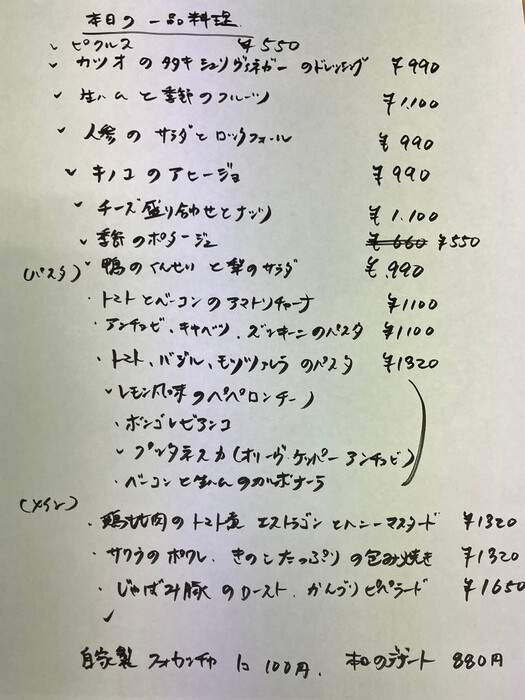 本日の一品料理
ピクルス ¥550
カツオのタタキ シェリヴィネガーのドレッシング ¥990
生ハムと季節のフルーツ ¥1.100
人参のサラダとロックフォール ¥990
キノコのアヒージョ ¥990
チーズ盛り合わせとナッツ ¥1.100
季節のポタージュ ¥660 ¥550
鴨のくんせいと梨のサラダ ¥990
(パスタ)
・トマトとベーコンのアマトリチャーナ ¥1100
・アンチョビ、キャベツ、ズッキーニのパスタ ¥1100
・トマト、バジル、モッツァレラのパスタ ¥1320
レモン風味のペペロンチーノ
・ボンゴレビアンコ
・プッタネスカ(オリーヴ、ケッパー アンチョビ)
・ベーコンと生ハムのカルボナーラ
(メイン)
・鶏もも肉のトマト煮 エストラゴンとハニーマスタード ¥1320
・サワラのポワレ、きのこたっぷりの包み焼き ¥1320
・じゃばみ豚のロースト、かんづりピペラード ¥1650
自家製 フォカッチャ 1コ 100円、 本日のデザート 880円